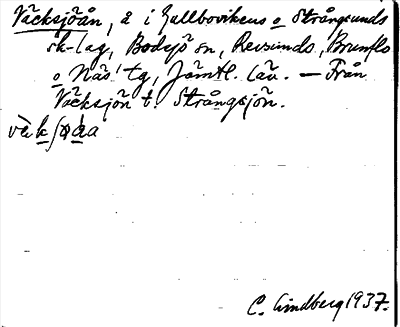 Väcksjöån, å i Gallbovikens o Strångsunds
sk-lag, Bodsjö sn, Revsunds, Brunflo
o Näs' tg, Jämtl. län. – Från
Väcksjön t. Strångsjön.
C. Lindberg 1937.